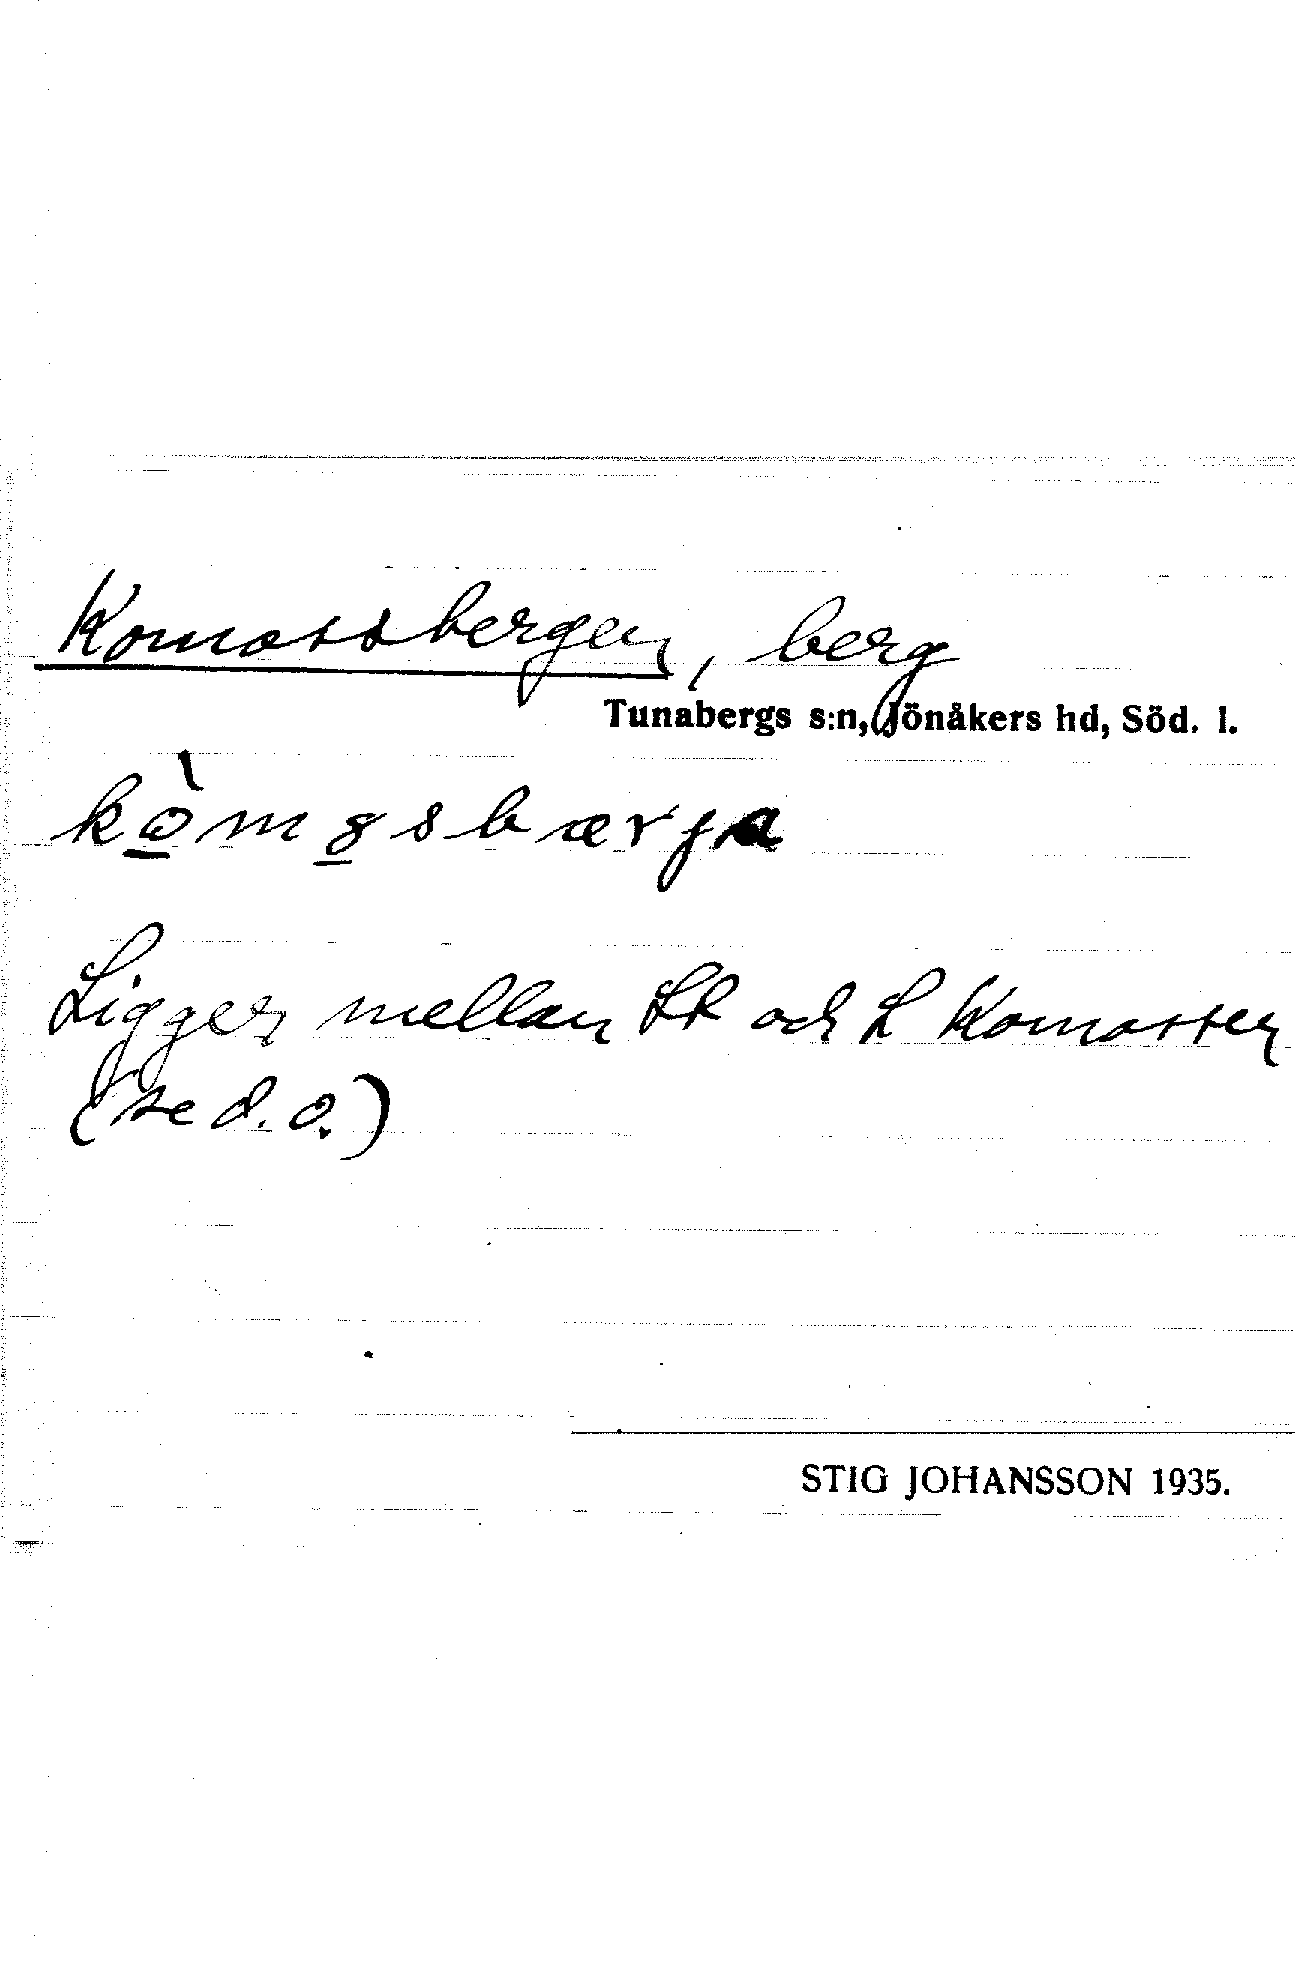 Komossbergen, berg
Tunabergs s:n, Jönåkers hd, Söd. l.
Ligger mellan St och L Komossen
(se d. o.)
STIG JOHANSSON 1935.